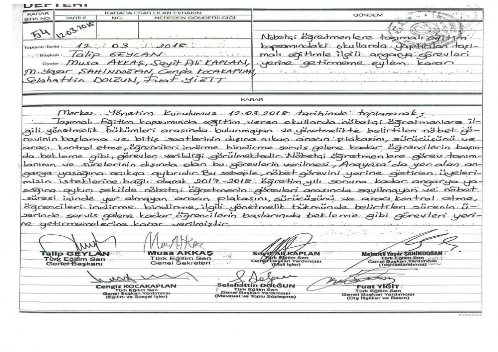 DEFTERİ
KARAR
SIRA NO.
TARİH
KARARA ESAS OLAN EVRAKIN
NO. NEREDEN GÖNDERİLDİĞİ
GÜNDEM
54
12.03.2018
Toplantı Tarihi : 12 / 03 / 2018
Başkan : Talip GEYLAN
Üyeler : Musa AKKAŞ, Seyit Ali KAPLAN,
M. Yaşar ŞAHİNDOĞAN, Cengiz KOCAKAPLAN,
Selahattin DOLGUN, Fuat YİĞİT
Nöbetçi öğretmenlere taşımalı eğitim
kapsamındaki okullarda yaptırılan taşı-
malı eğitimle ilgili angarya görevleri
yerine getirmeme eylem kararı
KARAR
Merkez Yönetim Kurulumuz 12.03.2018 tarihinde toplanarak;
Taşımalı Eğitim kapsamında eğitim veren okullarda nöbetçi öğretmenlere il-
gili yönetmelik hükümleri arasında bulunmayan ve yönetmelikte belirtilen nöbet gö-
revinin başlama ve bitiş saatlerinin dışına çıkan aracın plakasını, sürücüsünü ve
aracı kontrol etme, öğrencileri indirme bindirme servis gelene kadar öğrencilerin başın-
da bekleme gibi, görevler verildiği görülmektedir. Nöbetçi öğretmenlere görev tanım-
larının ve sürelerinin dışında olan bu görevlerin verilmesi, Anayasa'da yer alan an-
garya yasağına aykırıdır. Bu sebeple, nöbet görevini yerine getiren üyeleri-
mizin isteklerine bağlı olarak 2017-2018 eğitim yılı sonuna kadar angarya ya-
sağına aykırı şekilde nöbetçi öğretmenin görevleri arasında sayılmayan ve nöbet
süresi içinde yer almayan aracın plakasını, sürücüsünü ve aracı kontrol etme,
öğrencileri indirme bindirme, ilgili yönetmelik hükmünde belirtilen sürenin ü-
zerinde servis gelene kadar öğrencilerin başlarında bekleme gibi görevleri yeri-
ne getirmemelerine karar verilmiştir.
Talip GEYLAN
Türk Eğitim Sen
Genel Başkanı
Musa AKKAŞ
Türk Eğitim Sen
Genel Sekreteri
KAPLAN
Türk Eğitim Sen
Genel Başkan Yardımcısı
(Mali İşler)
Türk Eğitim Sen
Genel Başkan Yardımcısı
(Teşkilatlandırma)
Cengiz KOCAKAPLAN
Türk Eğitim Sen
Genel Başkan Yardımcısı
(Eğitim ve Sosyal İşler)
Selahattin DOLGUN
Türk Eğitim Sen
Genel Başkan Yardımcısı
(Mevzuat ve Toplu Sözleşme)
Fuat YİĞİT
Türk Eğitim Sen
Genel Başkan Yardımcısı
(Dış İlişkiler ve Basın)